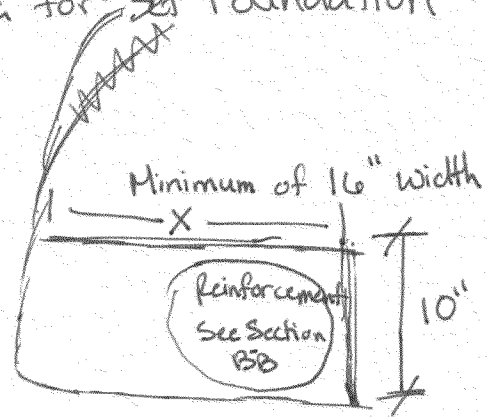 for Foundation
Minimum of 16" width
X
10"
Reinforcement
See Section
BB